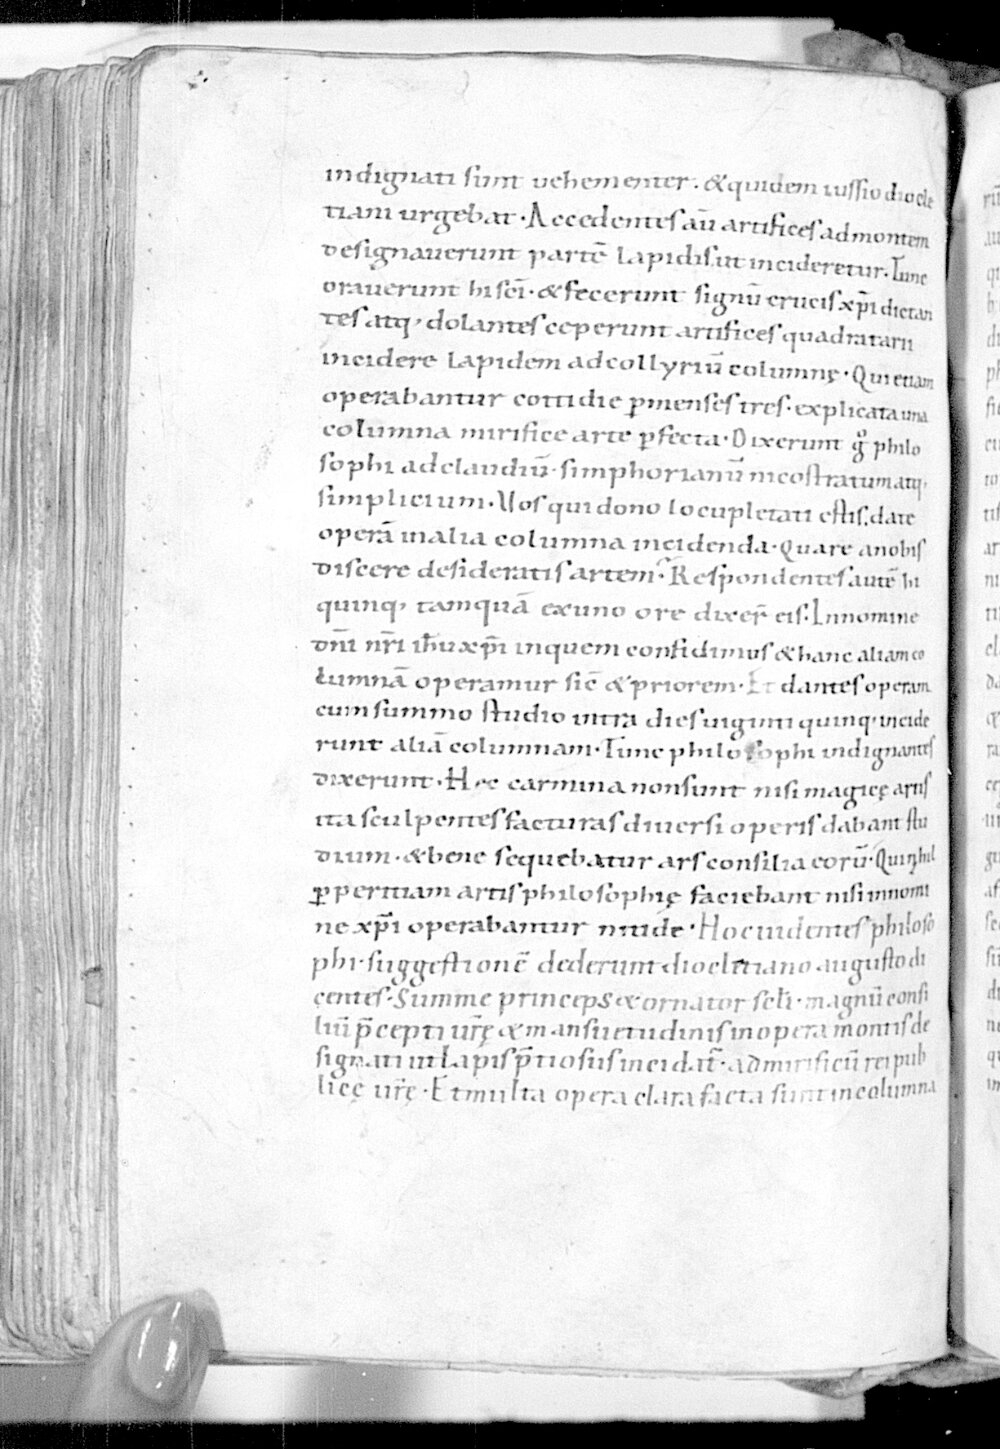 indignati sunt uehementer. & quidem iussio diocle
tiani urgebat. Accedentes aū artifices ad montem
designauerunt partē lapidis ut incideretur. Tunc
orauerunt hi sc̄i. & fecerunt signū crucis xp̄i dictan
tes atq; dolantes ceperunt artifices quadratarii
incidere lapidem ad collyriū columnę. Qui etiam
operabantur cottidie ꝑ menses tres. explicata una
columna mirifice arte ꝑfecta. Dixerunt g̊ philo
sophi ad claudiū. simphorianū nicostratum atq;
simplicium. Uos qui dono locupletati estis, date
operā in alia columna incidenda. Quare a nobis
discere desideratis artem. Respondentes autē hi
quinq; tamquā ex uno ore dixer̄ eis. In nomine
dn̄i nr̄i ih̄u xp̄i in quem confidimus & hanc aliam co
lumnā operamur sic̄ & priorem. Et dantes operam
cum summo studio intra dies uiginti quinq; incide
runt aliā columnam. Tunc philosophi indignantes
dixerunt. Hec carmina non sunt nisi magicę artis
ita sculpentes facturas diuersi operis dabant stu
dium. & bene sequebatur ars consilia eorū. Qui nihil
ꝑ peritiam artis philosophię faciebant nisi in nomi
ne xp̄i operabantur nitide. Hoc uidentes philoso
phi. suggestionē dederunt diocletiano augusto di
centes. Summe princeps & ornator scl̄i. magnū consi
liū p̄cepti ur̄ę & mansuetudinis in opera montis de
signati ut lapis p̄tiosus incidat̄. ad mirificū rei pub
licę ur̄ę. Et multa opera clara facta sunt in columna